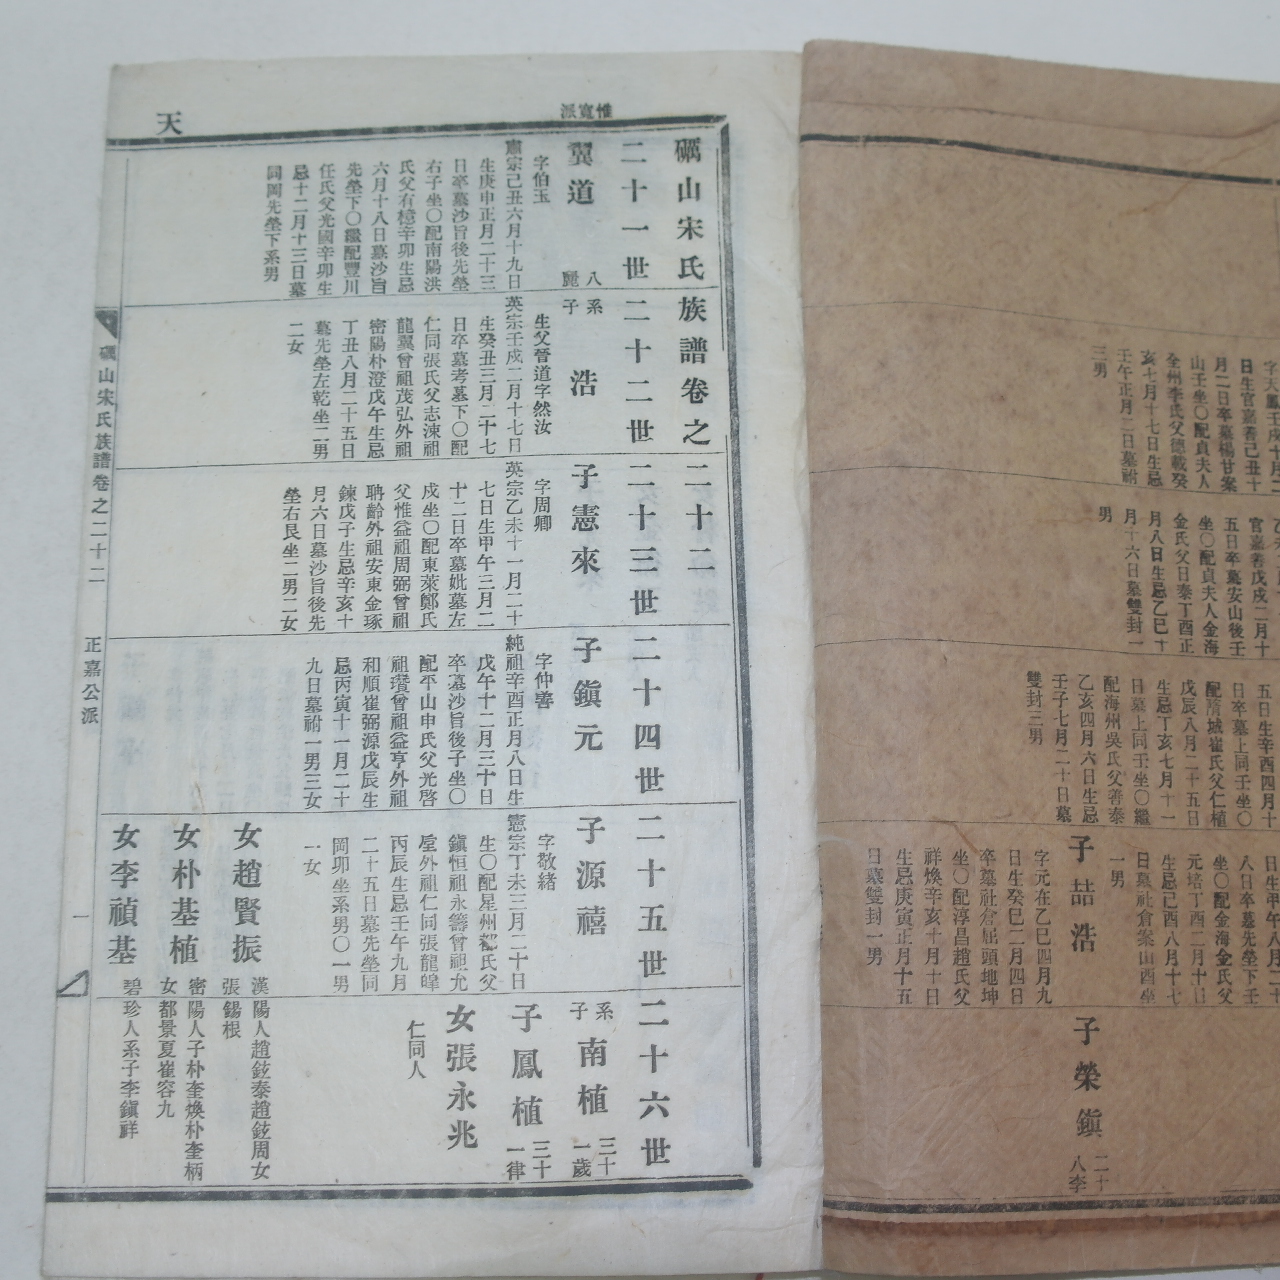 惟寬派
天
礪山宋氏族譜卷之二十二
二十一世
翼道
八麗
字伯玉
肅宗己丑六月十九日
生庚申正月二十三
日卒墓沙旨後先塋
右子坐〇配南陽洪
氏父有檍辛卯生忌
六月十八日墓沙旨
先塋下〇繼配豐川
任氏父光國辛卯生
忌十二月十三日墓
同岡先塋下系男
二十二世
系子
浩
生父晉道字然汝
英宗壬戌二月十七日
生癸丑三月二十七
日卒墓考墓下〇配
仁同張氏父志涑祖
龍翼曾祖茂弘外祖
密陽朴澄戊午生忌
丁丑八月二十五日
墓先塋左乾坐二男
二女
二十三世
子憲來
字周卿
英宗乙未十一月二十
七日生甲午三月二
十二日卒墓妣墓左
戌坐〇配東萊鄭氏
父惟益祖周弼曾祖
聃齡外祖安東金琢
鍊戊子生忌辛亥十
月六日墓沙旨後先
塋右艮坐二男二女
二十四世
子鎭元
字仲善
純祖辛酉正月八日生
戊午十二月三十日
卒墓沙旨後子坐〇
配平山申氏父光啓
祖瓚曾祖益亨外祖
和順崔弼源戊辰生
忌丙寅十一月二十
九日墓祔一男三女
二十五世
子源禧
字敬緖
憲宗丁未三月二十日
生〇配星州都氏父
鎭恒祖永籌曾祖允
垕外祖仁同張龍皥
丙辰生忌壬午九月
二十五日墓先塋同
岡卯坐系男〇一男
一女
女趙賢振
女朴基植
女李禎基
二十六世
系子
南植
三十一歲
子鳳植
三十一律
女張永兆
仁同人
漢陽人趙鉉泰趙鉉周女
張錫根
密陽人子朴奎煥朴奎柄
女都景夏崔容九
碧珍人系子李鎭祥
礪山宋氏族譜卷之二十二
正嘉公派
一
日生官嘉善己丑十
月二日卒墓楊甘案
山壬坐〇配貞夫人
全州李氏父德載癸
亥十月十七日生忌
壬午正月二日墓祔
三男
官嘉善戊戌二月十
五日卒墓安山後壬
坐〇配貞夫人金海
金氏父日泰丁酉正
月八日生忌乙巳十
月十六日墓雙封一
男
五日生辛酉四月十
日卒墓上同壬坐〇
配隋城崔氏父仁植
戊辰八月二十五日
生忌丁亥七月十一
日墓上同壬坐〇繼
配海州吳氏父善泰
乙亥四月六日生忌
壬子七月二十日墓
雙封三男
日生甲午八月二十
八日卒墓先塋下壬
坐〇配金海金氏父
元培丁酉二月十日
生忌己酉八月十七
日墓社倉案山酉坐
一男
子喆浩
字元在乙巳四月九
日生癸巳二月四日
卒墓社倉屈頭地坤
坐〇配淳昌趙氏父
祥煥辛亥十月十日
生忌庚寅正月十五
日墓雙封一男
子榮鎭
二十八李